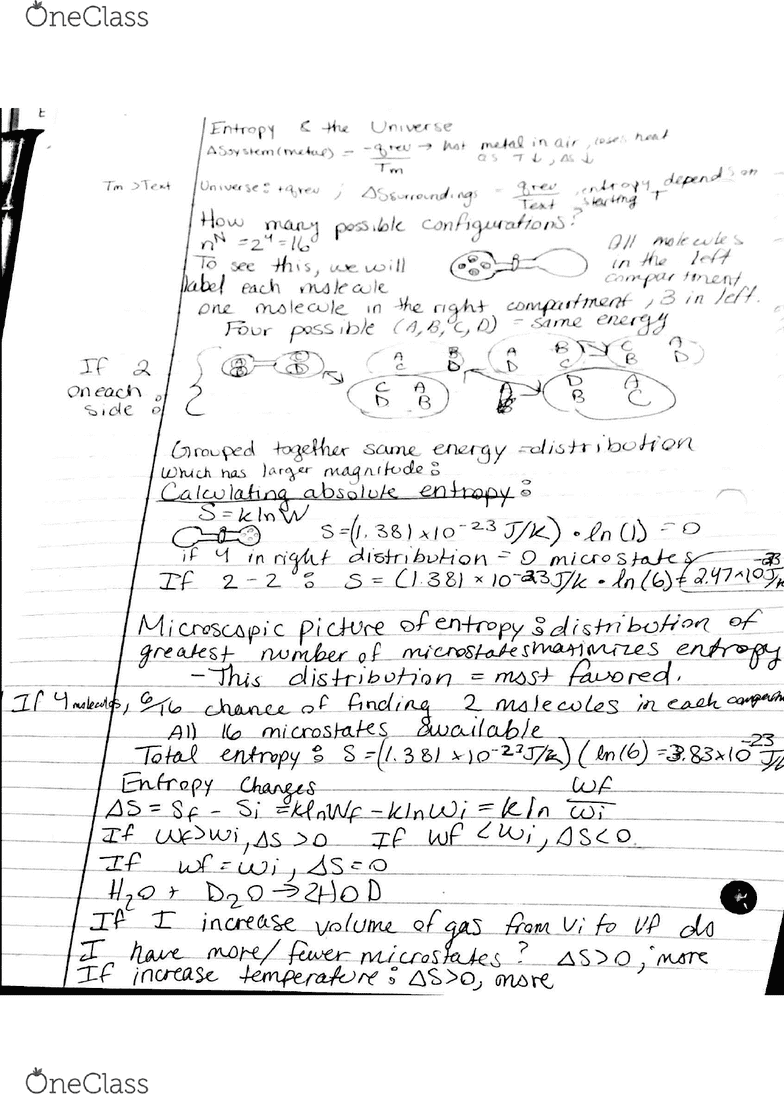 OneClass
Entropy & the Universe
ΔSsystem(metal) = -qrev/Tm → hot metal in air, loses heat
as T↓, ΔS↓
Tm > Text
Universe: +qrev ; ΔSsurroundings = qrev/Text, entropy depends on starting T
How many possible configurations?
n^N = 2^4 = 16
To see this, we will
label each molecule
All molecules
in the left
compartment
one molecule in the right compartment, 3 in left.
Four possible (A, B, C, D) = same energy
If 2
on each
side:
A B
C D
A C
B D
A D
B C
C B
A D
C D
A B
D B
A C
Grouped together same energy = distribution
which has larger magnitude:
Calculating absolute entropy:
S = k ln W
S = (1.381 x 10^-23 J/K) • ln (1) = 0
if 4 in right distribution = 0 microstates
If 2 - 2 : S = (1.381 x 10^-23 J/K • ln (6) = 2.47 x 10^-23 J/K
Microscopic picture of entropy: distribution of
greatest number of microstates maximizes entropy
- This distribution = most favored.
If 4 molecules, 6/16 chance of finding 2 molecules in each
All 16 microstates available
Total entropy: S = (1.381 x 10^-23 J/K) (ln(16) = 3.83 x 10^-23 J/K
Entropy Changes
ΔS = Sf - Si = klnWf - klnWi = k ln Wf/Wi
If Wf > Wi, ΔS > 0 If Wf < Wi, ΔS < 0.
If Wf = Wi, ΔS = 0
H2O + D2O → 2HOD
If I increase volume of gas from Vi to Vf do
I have more/fewer microstates? ΔS > 0, more
If increase temperature: ΔS > 0, more
OneClass